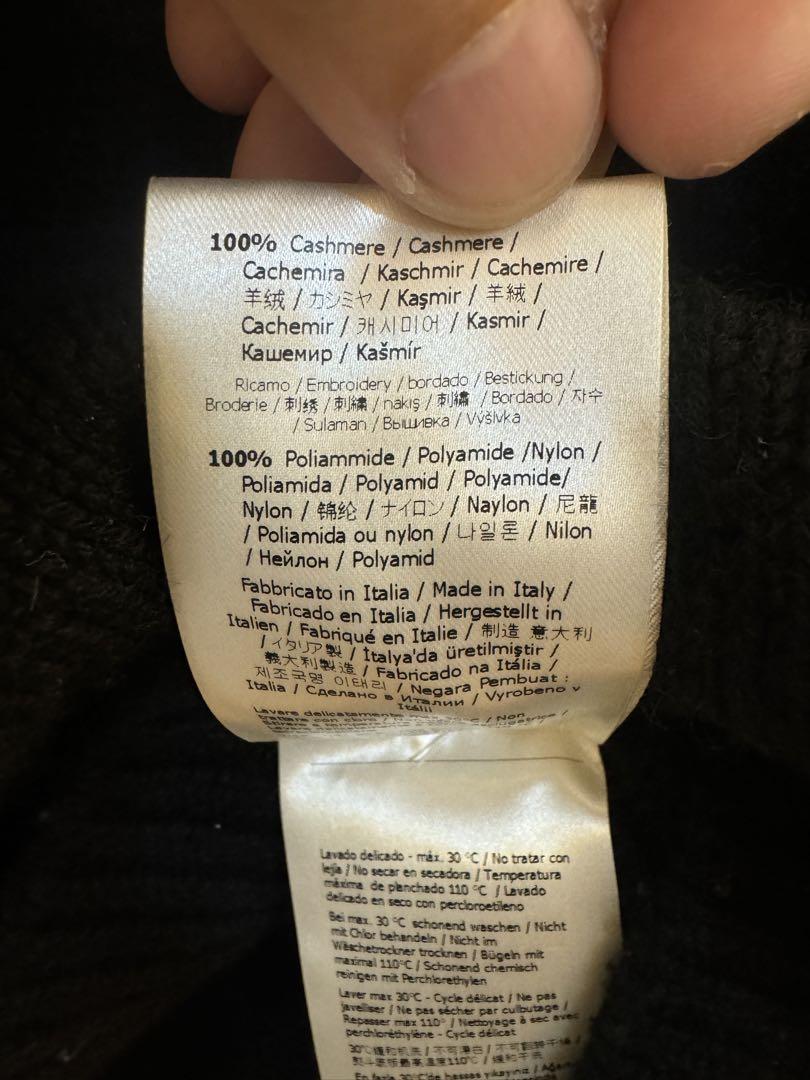 100% Cashmere / Cashmere /
Cachemira / Kaschmir / Cachemire /
羊绒 / カシミヤ / Kaşmir / 羊絨 /
Cachemir / 캐시미어 / Kasmir /
Кашемир / Kašmír
Ricamo / Embroidery / bordado / Bestickung /
Broderie / 刺绣 / 刺繡 / nakış / 刺繍 / Bordado / 자수
/ Sulaman / Вышивка / Výšivka
100% Poliammide / Polyamide /Nylon /
Poliamida / Polyamid / Polyamide/
Nylon / 锦纶 / ナイロン / Naylon / 尼龍
/ Poliamida ou nylon / 나일론 / Nilon
/ Нейлон / Polyamid
Fabbricato in Italia / Made in Italy /
Fabricado en Italia / Hergestellt in
Italien / Fabriqué en Italie / 制造 意大利
/ イタリア製 / İtalya'da üretilmiştir /
義大利製造 / Fabricado na Itália /
제조국명 이태리 / Negara Pembuat :
Italia / Сделано в Италии / Vyrobeno v
Itálii
Lavare delicatamente / Non
trattare con cloro /
Lavado delicado - máx. 30 °C / No tratar con
lejía / No secar en secadora / Temperatura
máxima de planchado 110 °C / Lavado
delicado en seco con percloroetileno
Bei max. 30 °C schonend waschen / Nicht
mit Chlor behandeln / Nicht im
Wäschetrockner trocknen / Bügeln mit
maximal 110°C / Schonend chemisch
reinigen mit Perchlorethylen
Laver max 30°C - Cycle délicat / Ne pas
javelliser / Ne pas sécher par culbutage /
Repasser max 110° / Nettoyage à sec avec
perchloréthylène - Cycle délicat
30°C缓和机洗 / 不可漂白 / 不可翻转干燥 /
熨斗底板最高温度110°C / 缓和干洗
En fazla 30°C'de hassas yıkayınız /